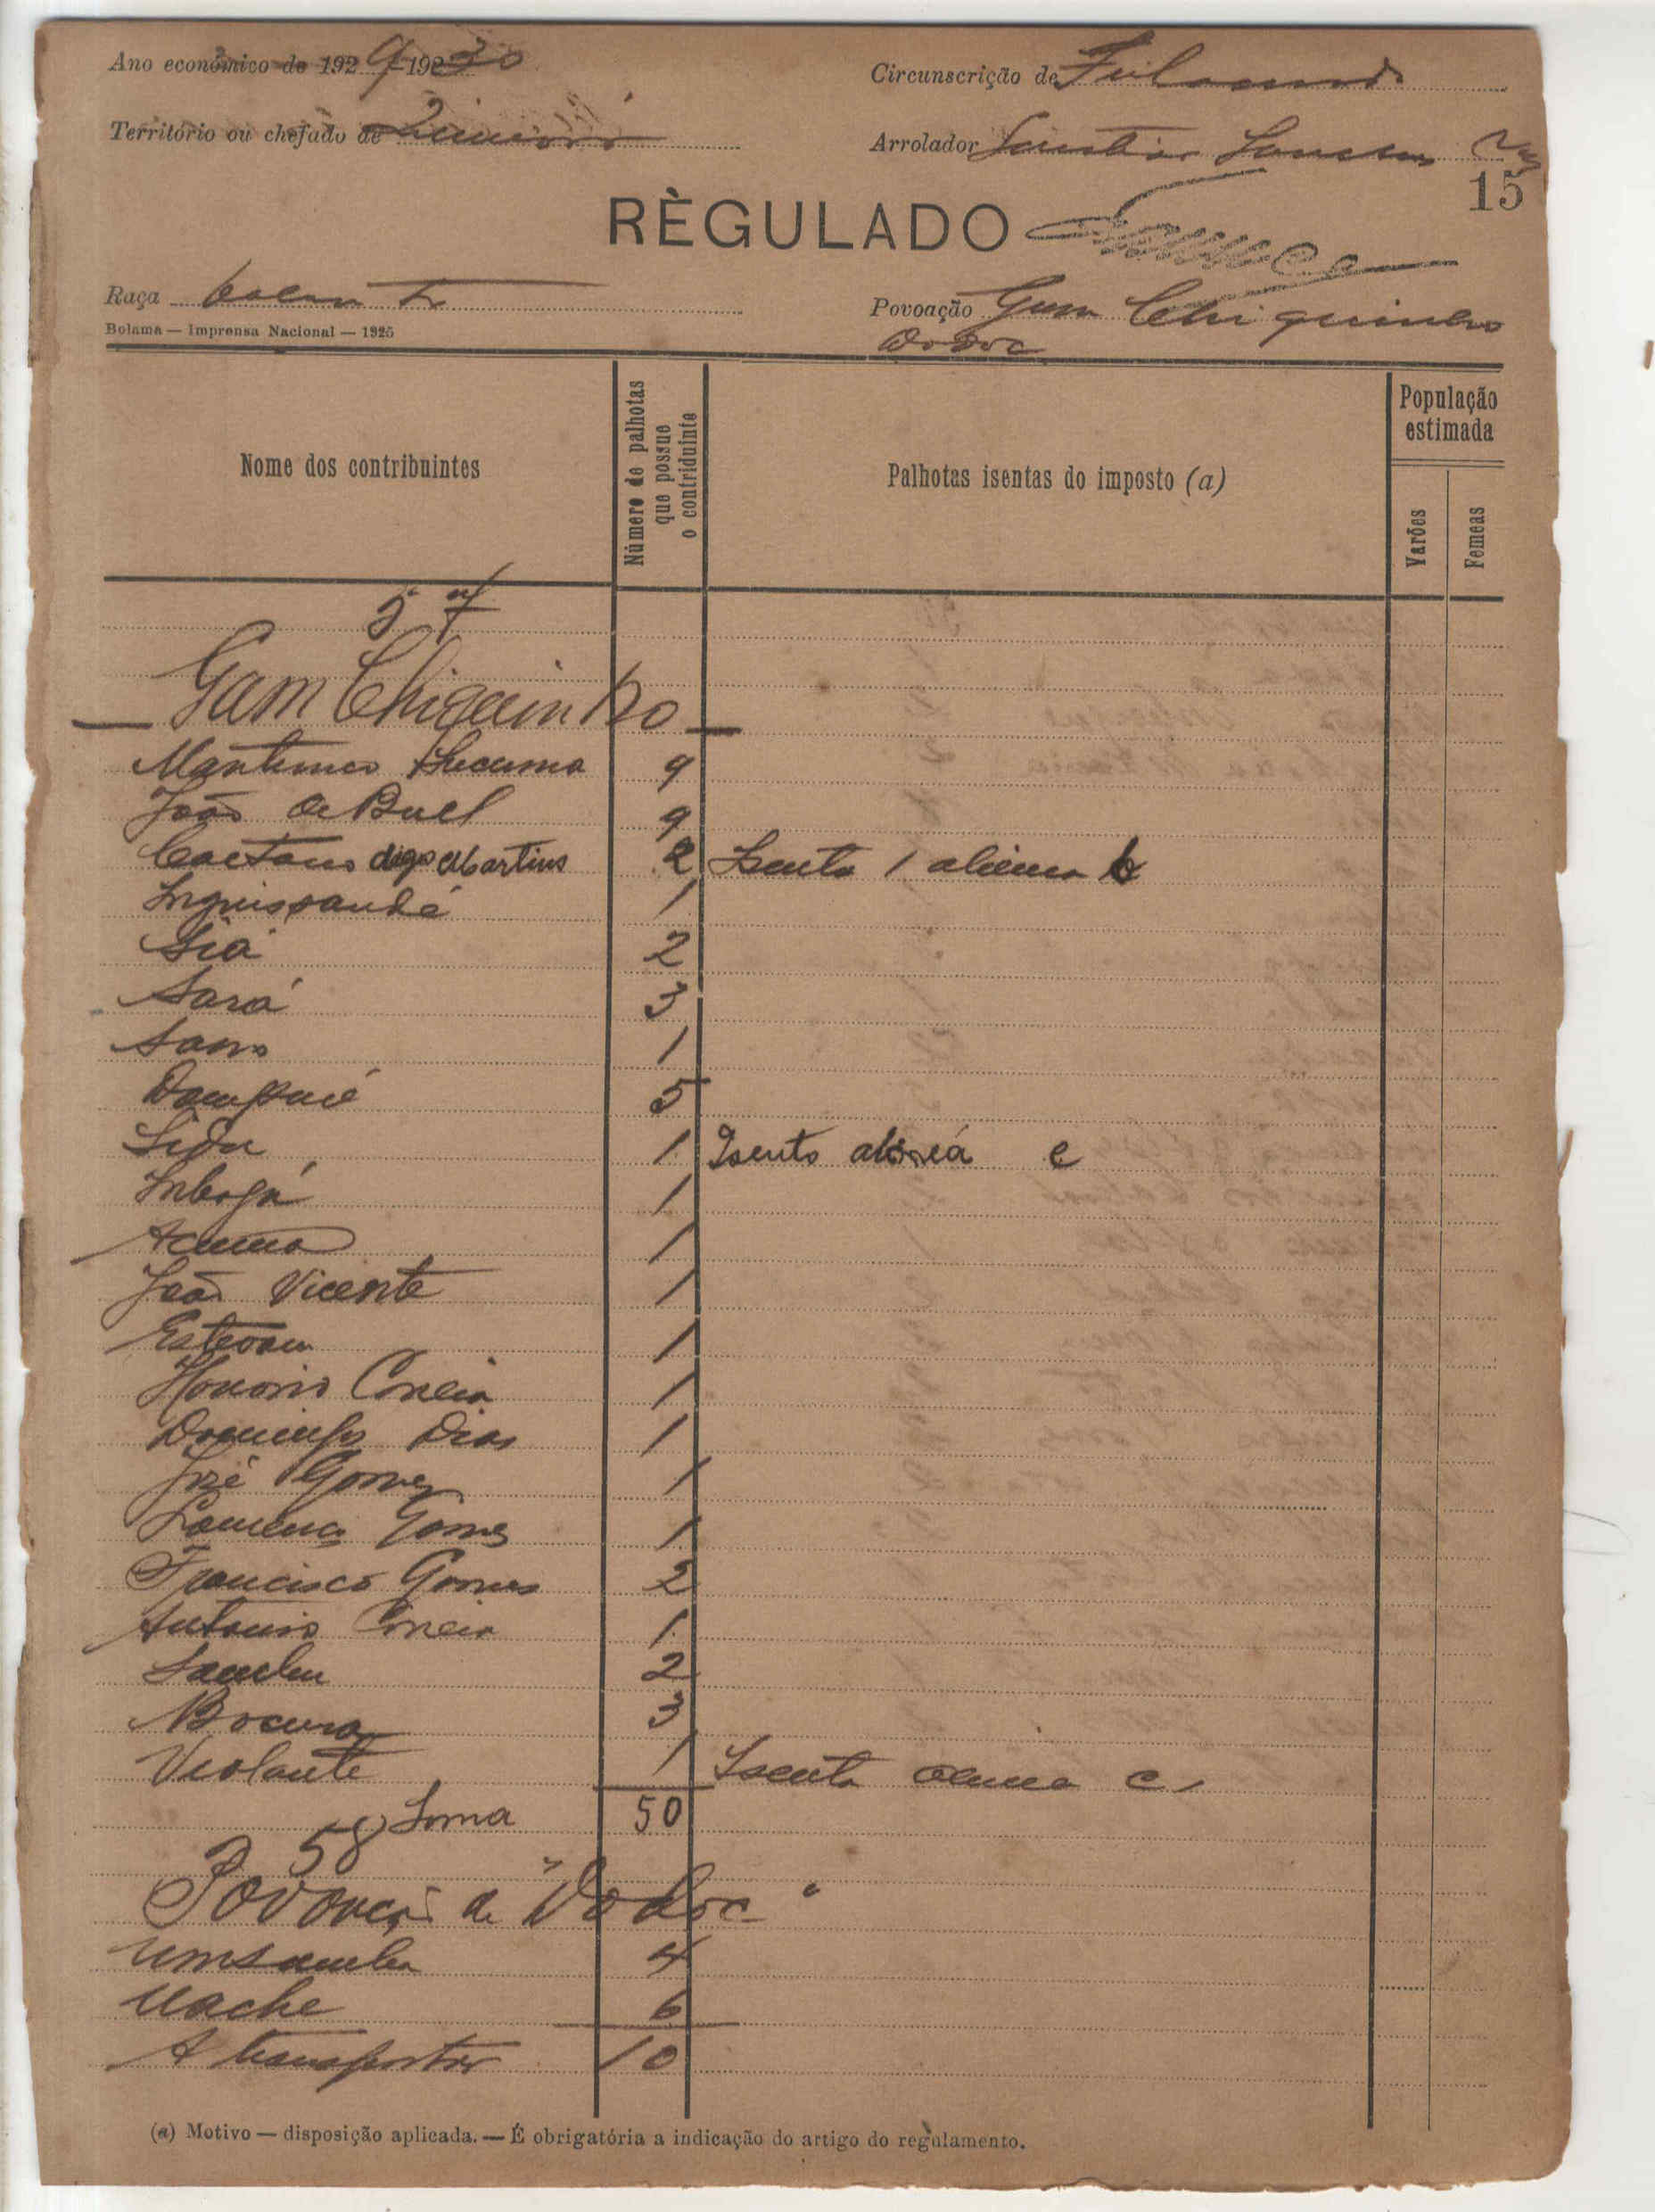 Ano económico de 1929-1930
Circunscrição de Fulacunda
Território ou chefado de Quinará
Arrolador
15
RÈGULADO
Raça
Povoação Gam Chiquinho
Dodoc
Bolama — Imprensa Nacional — 1925
Nome dos contribuintes
Número de palhotas que possue o contriduinte
Palhotas isentas do imposto (a)
População estimada
Varões
Femeas
57
Gam Chiquinho
9
João 9
Caetano digo Martins 2 Isenta 1 b
Inquissandé 1
Siá 2
Sará 3
Sano 1
5
1 Isento e
1
1
João Vicente 1
Estevam 1
Honorio Correia 1
Domingos Dias 1
José Gomes 1
Lourenço Gomes 1
Francisco Gomes 2
Antonio Correia 1
Samba 2
Bocura 3
Violante 1 Isenta c
Soma 50
58
Povoação de "Dodoc"
Umsamba 4
Uache 6
A transportar 10
(a) Motivo — disposição aplicada. — É obrigatória a indicação do artigo do regulamento.